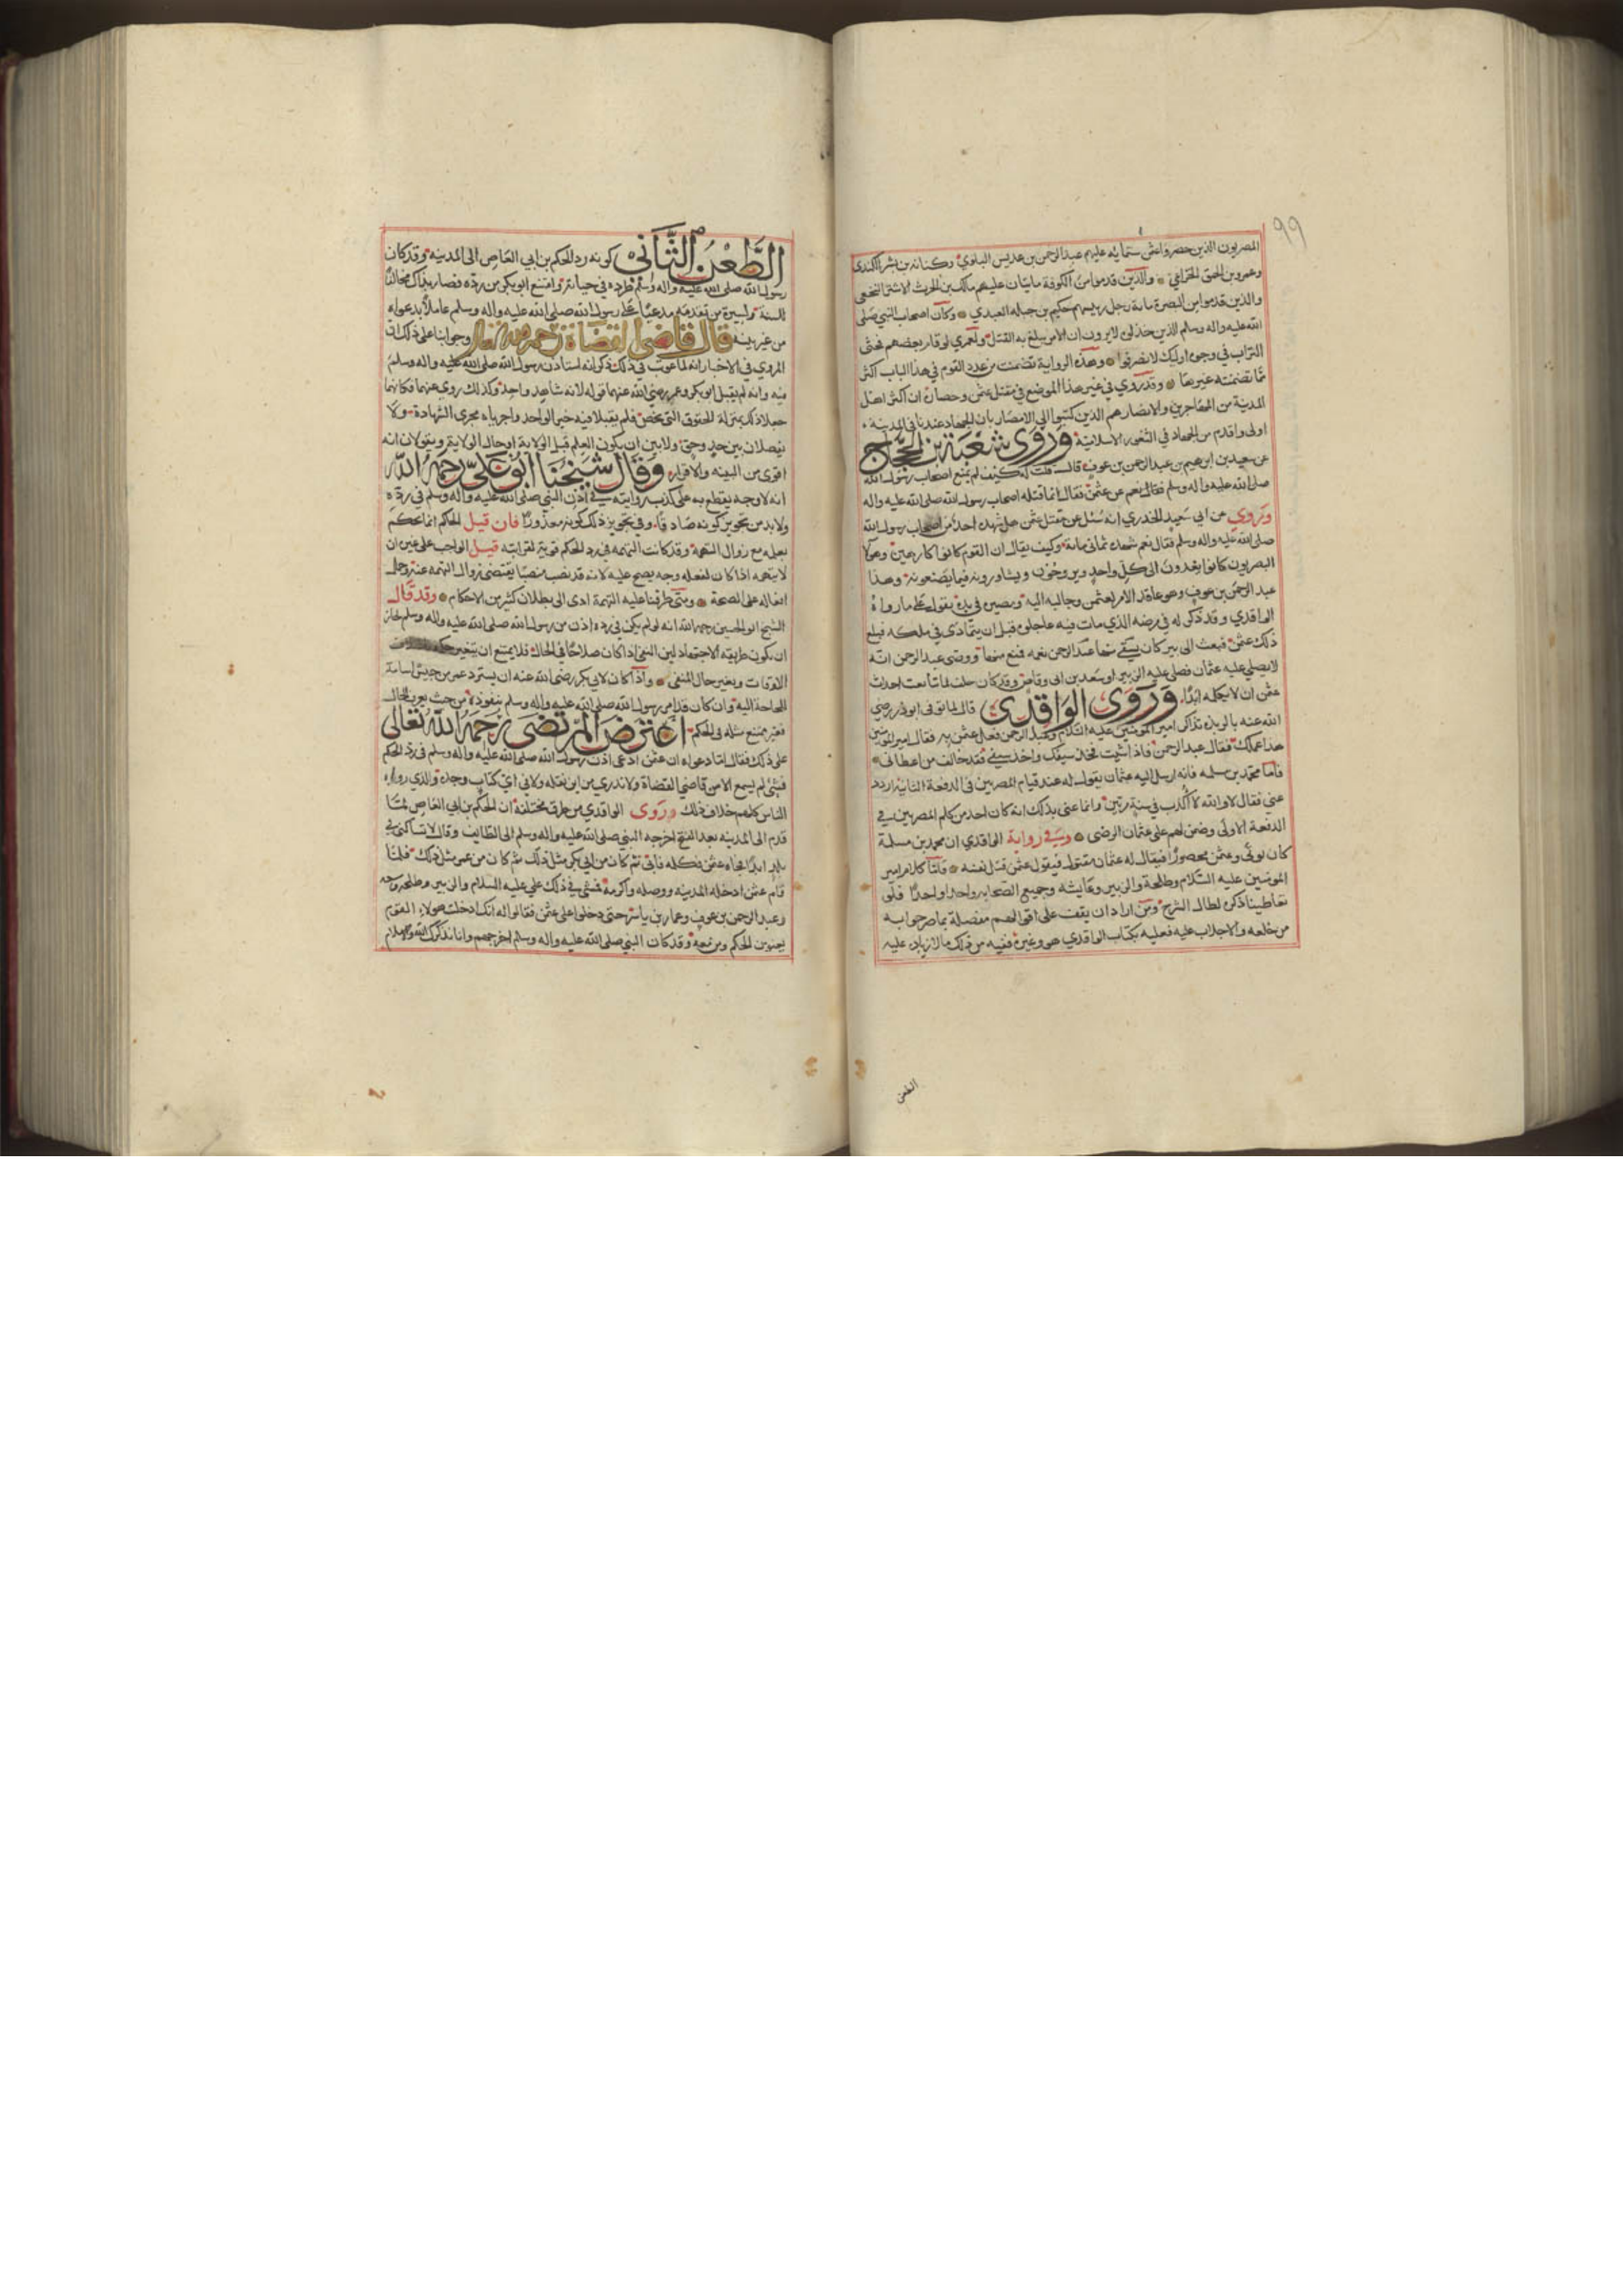 ٩٩
المصريون الذين حصروا عثمن ستمايه عليهم عبد الرحمن بن عديس البلوي وكنانه بن بشر الكندي
وعمرو بن الحمق الخزاعي والذين قدموا من الكوفة مايتان عليهم مالك بن الحرث الاشتر النخعي
والذين قدموا من البصرة مائة رجل رييسهم حكيم بن جبله العبدي وكان اصحاب النبي صلى
الله عليه واله وسلم الذين خذلوه لا يرون ان الامر يبلغ به القتل ولعمري لو قام بعضهم فحثى
التراب في وجوه اوليك لانصرفوا وهذه الرواية تضمنت من عدد القوم في هذا الباب اكثر
مما تضمنته غيرها وقد روي في غير هذا الموضع في مقتل عثمن وحصاره ان اكثر اهل
المدينة من المهاجرين والانصار هم الذين كتبوا الى الامصار بان الجهاد عندنا في المدينة
اولى واقدم من الجهاد في الثغور الاسلامية وروى شعبة بن الحجاج
عن سعيد بن ابرهيم بن عبد الرحمن بن عوف قال قلت له كيف لم يمنع اصحاب رسول الله
صلى الله عليه واله وسلم عن عثمن فقال انما قتله اصحاب رسول الله صلى الله عليه واله
وروي عن ابي سعيد الخدري انه سئل عن مقتل عثمن هل شهده احد من اصحاب رسول الله
صلى الله عليه واله وسلم فقال نعم شهده ثماني مائة وكيف يقال ان القوم كانوا كارهين وهولا
المصريون كانوا يغدون الى كل واحد ويروحون ويشاورونه فيما يصنعونه وهذا
عبد الرحمن بن عوف وهو عاقد الامر لعثمن وجالبه اليه ومصيره في يده يقول على ما رواه
الواقدي وقد ذكر له في مرضه الذي مات فيه عاجلوه قبل ان يتمادى في ملكه فبلغ
ذلك عثمن فبعث الى بير كان يسقي منها عبد الرحمن نعمه فمنع منها ووصى عبد الرحمن انه
لا يصلي عليه عثمان فصلى عليه الزبير او سعد بن ابي وقاص وقد كان حلف لما تابعت احداث
عثمن ان لا يكلمه ابدا وروى الواقدي قال لما توفى ابوذر رضي
الله عنه بالربذه تذاكر امير المومنين عليه السلام وعبد الرحمن فعل عثمن به فقال امير المومنين
هذا عملك فقال عبد الرحمن فاذا شئت فخذ سيفك واخذ سيفي فقد خالف من اعطاني
فاما محمد بن سلمه فانه ارسل اليه عثمان يقول له عند قيام المصريين في الدفعة الثانية اردد
عني فقال لا والله لا اكذب في سنة مرتين وانما عنى بذلك انه كان احد من كلم المصريين في
الدفعة الاولى وضمن لهم على عثمان الرضى وفي رواية الواقدي ان محمد بن مسلمة
كان يوتى وعثمن محصور فيقال له عثمان مقتول فيقول عثمن قتل نفسه فاما كلام امير
المومنين عليه السلام وطلحة والزبير وعايشه وجميع الصحابه واحدا واحدا فلو
تعاطينا ذكره لطال الشرح ومن اراد ان يقف على اقوالهم مفصلة بما صرحوا به
من خلعه والاجلاب عليه فعليه بكتاب الواقدي هو وغيره ففيه من ذلك ما لا زياده عليه
الطعن
الطعن الثاني كونه رد الحكم بن ابي العاص الى المدينه وقد كان
رسول الله صلى الله عليه واله وسلم طرده في حياته وامتنع ابو بكر من رده فصار بذلك مخالفا
للسنة ولسيرة من تقدمه مدعيا على رسول الله صلى الله عليه واله وسلم عاملا بدعواه
من غير بينة قال قاضي القضاة رحمه الله تعالى وجوابنا على ذلك ان
المروي في الاخبار انه لما عوتب في ذلك ذكر انه استاذن رسول الله صلى الله عليه واله وسلم
فيه وانه لم يقبل ابو بكر وعمر رضي الله عنهما قوله لانه شاهد واحد وكذلك روي عنهما فكانهما
جعلا ذلك بمنزلة الحقوق التي تخص فلم يقبلا فيه خبر الواحد واجرياه مجرى الشهادة ولا
يفصلان بين حد وحق ولا بين ان يكون العلم قبل الولاية او حال الولاية ويقولان انه
اقوى من البينه والاقرار وقال شيخنا ابو علي رحمه الله
انه لا وجه يقطع به على كذب روايته في اذن النبي صلى الله عليه واله وسلم في رده
ولا بد من تجويز كونه صادقا وفي تجويز ذلك كونه معذورا فان قيل الحاكم انما يحكم
بعلمه مع زوال التهمة وقد كانت التهمه في رد الحكم قوية لقرابته قيل الواجب على غيره ان
لا يتهمه اذا كان لفعله وجه يصح عليه لانه قد نصب منصبا يقتضى زوال التهمه عنه وحمل
افعاله على الصحة ومتى طرقنا عليه التهمة ادى الى بطلان كثير من الاحكام وقد قال
الشيخ ابو الحسين رحمه الله انه لو لم يكن في رده اذن من رسول الله صلى الله عليه واله وسلم لجاز
ان يكون طريقه الاجتهاد لان النفي اذا كان صلاحا في الحال فلا يمتنع ان يتغير حكمه
الاوقات وبغير حال المنفي واذا كان لابي بكر رضي الله عنه ان يسترد عمر من جيش اسامة
للحاجة اليه وان كان قد امر رسول الله صلى الله عليه واله وسلم بنفوذه من حيث تغيرت الحال
فغير ممتنع مثله في الحكم اعترض المرتضى رحمه الله تعالى
على ذلك فقال اما دعواه ان عثمن ادعى اذن رسول الله صلى الله عليه واله وسلم في رد الحكم
فشيء لم يسمع الا من قاضي القضاة ولا ندري من اين نقله ولا في اي كتاب وجده والذي رواه
الناس كلهم خلاف ذلك روى الواقدي من طرق مختلفة ان الحكم بن ابي العاص لما
قدم الى المدينه بعد الفتح اخرجه النبي صلى الله عليه واله وسلم الى الطايف وقال لا تساكني في
بلد ابدا فجاءه عثمن فكلمه فابى ثم كان من ابي بكر مثل ذلك ثم كان من عمر مثل ذلك فلما
قام عثمن ادخله المدينه ووصله واكرمه فمشى في ذلك علي عليه السلام والزبير وطلحه وسعد
وعبد الرحمن بن عوف وعمار بن ياسر حتى دخلوا على عثمن فقالوا له انك ادخلت هولاء القوم
يعنون الحكم ومن معه وقد كان النبي صلى الله عليه واله وسلم اخرجهم وانا نذكرك الله والاسلام